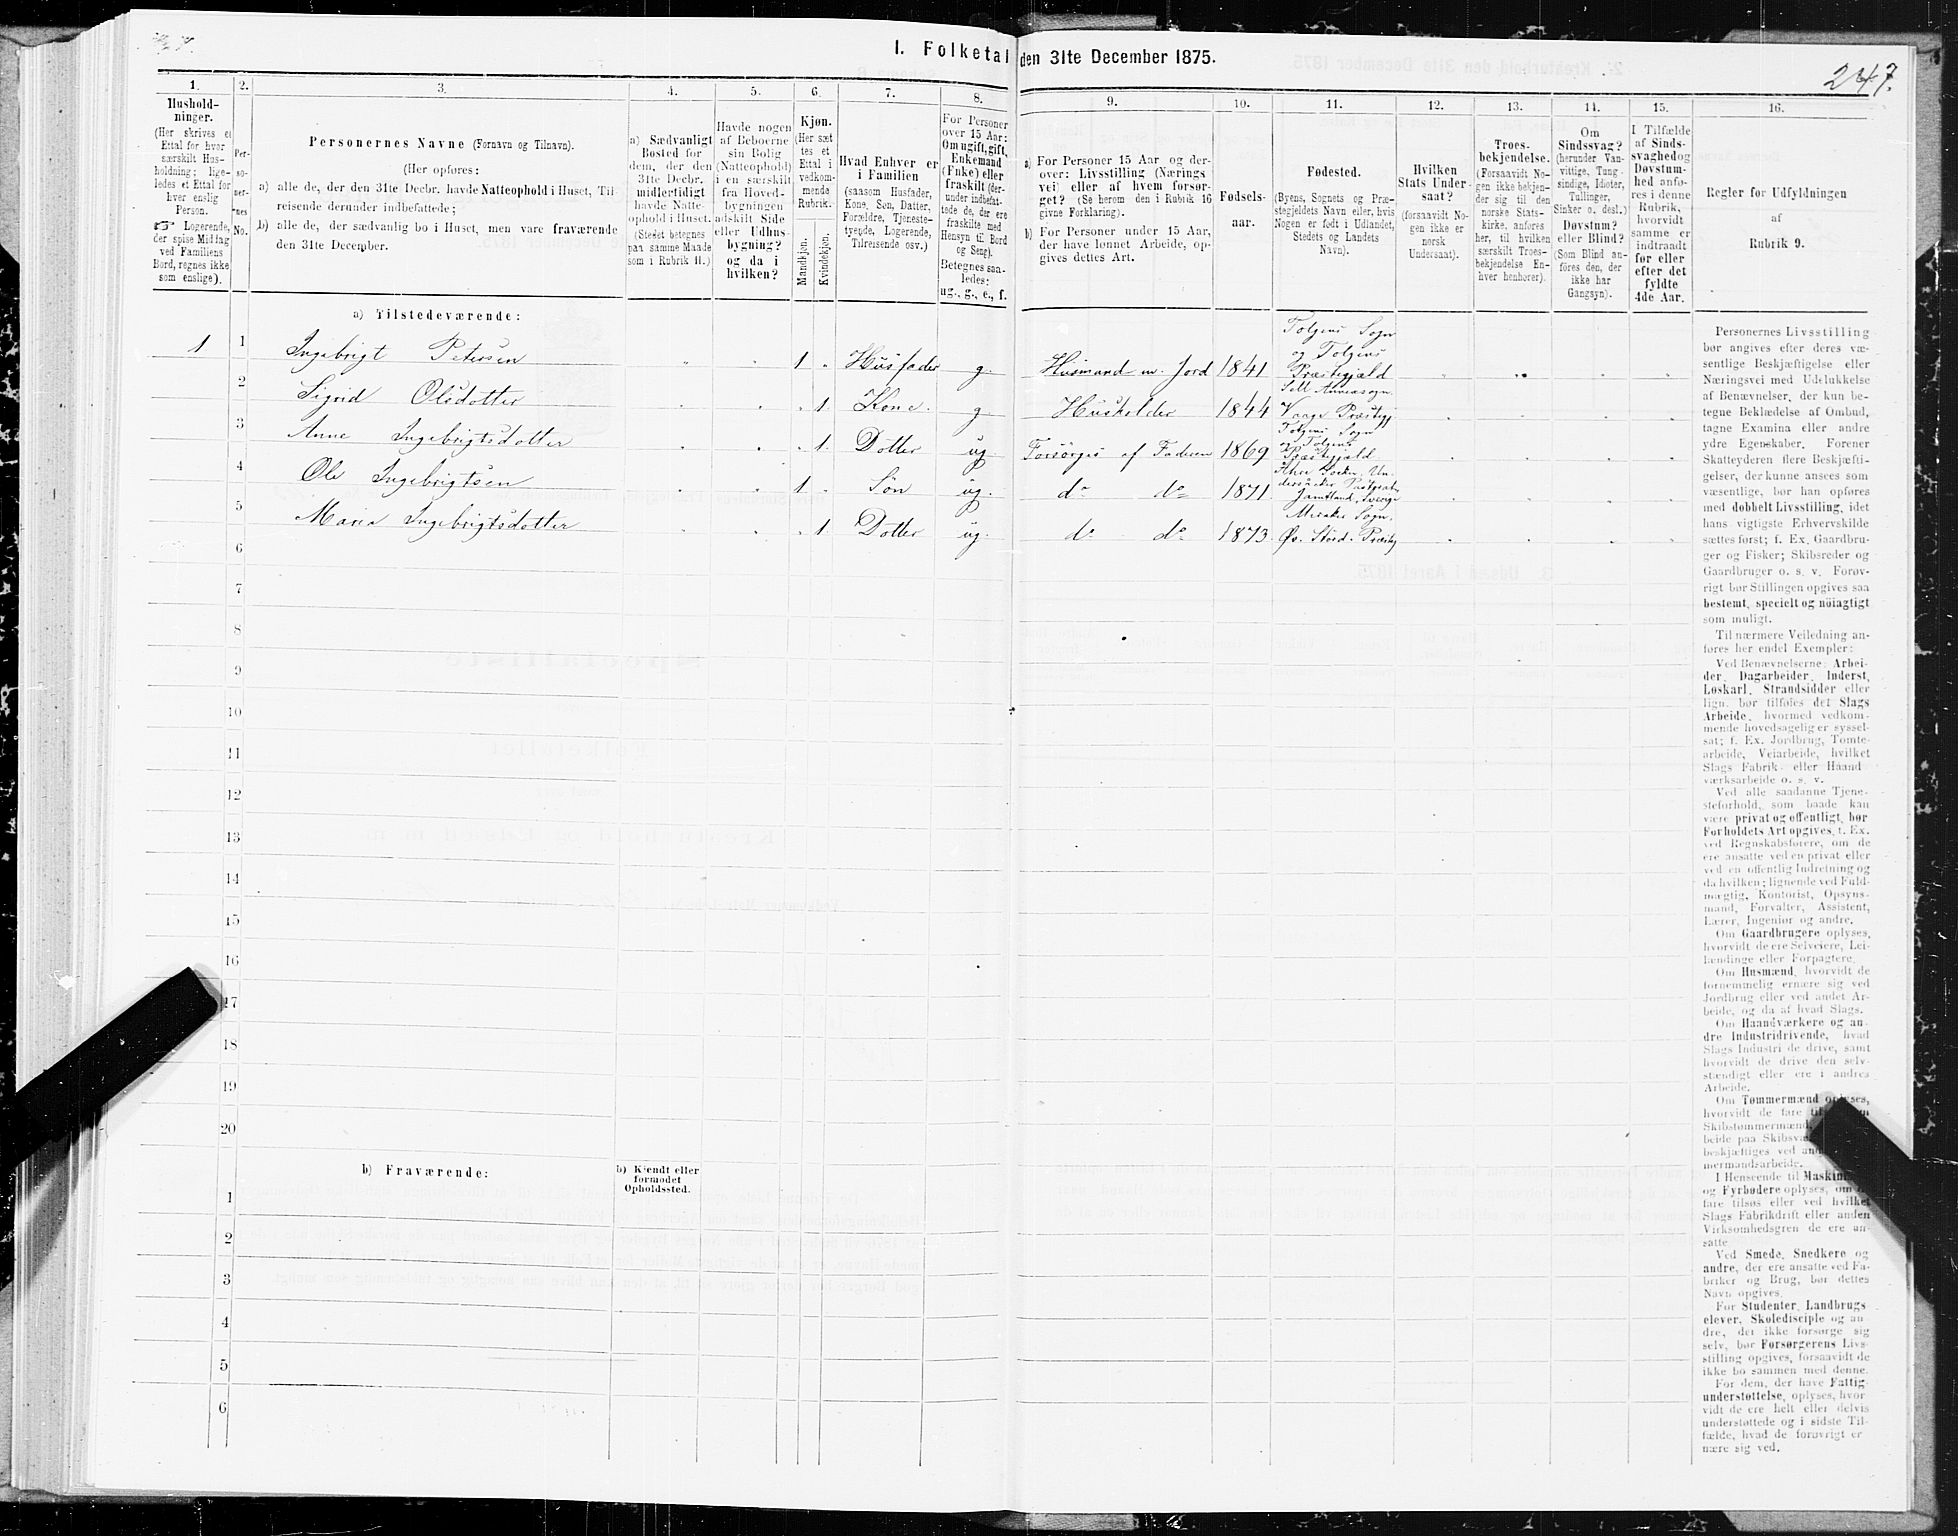 I. Folketal den 31te December 1875.
247.
1.
Hushold-
ninger.
(Her skrives et
Ettal for hver
særskilt Hus-
holdning; lige-
ledes et Ettal for
hver enslig
Person.
☞ Logerende,
der spise Middag
ved Familiens
Bord, regnes ikke
som enslige).
2.
Per-
so-
ner-
nes
No.
3.
Personernes Navne (Fornavn og Tilnavn).
(Her opføres:
a) alle de, der den 31te Decbr. havde Natteophold i Huset, Til-
reisende derunder indbefattede;
b) alle de, der sædvanlig bo i Huset, men vare fraværende
den 31te December.
4.
a) Sædvanligt
Bosted for
dem, der den
31te Decbr.
midlertidigt
havde Natte-
ophold i Huset.
(Stedet betegnes
paa samme Maade
som i Rubrik 11.)
5.
Havde nogen
af Beboerne
sin Bolig
(Natteophold)
i en særskilt
fra Hoved-
bygningen
adskilt Side
eller Udhus-
bygning?
og da i
hvilken?
6.
Kjøn.
(Her sæt
tes et
Ettal i
vedkom-
mende
Rubrik.
Mandkjøn.
Kvindekjøn.
7.
Hvad Enhver er
i Familien
(saasom Husfader,
Kone, Søn, Datter,
Forældre, Tjeneste-
tyende, Logerende,
Tilreisende osv.)
8.
For Personer
over 15 Aar:
Om ugift, gift,
Enkemand
(Enke) eller
fraskilt (der-
under indbefat-
tede de, der ere
fraskilte med
Hensyn til Bord
og Seng).
Betegnes saa-
ledes:
ug., g., e., f.
9.
a) For Personer 15 Aar og der-
over: Livsstilling (Nærings
vei) eller af hvem forsør-
get? (Se herom den i Rubrik 16
givne Forklaring).
b) For Personer under 15 Aar,
der have lønnet Arbeide, op-
gives dettes Art.
10.
Fødsels-
aar.
11.
Fødested.
(Byens, Sognets og Præ-
stegjeldets Navn eller, hvis
Nogen er født i Udlandet,
Stedets og Landets
Navn).
12.
Hvilken
Stats Under-
saat?
(forsaavidt No-
gen ikke er
norsk
Undersaat).
13.
Troes-
bekjendelse.
(Forsaavidt No-
gen ikke bekjen-
der sig til den
norske Stats-
kirke, anføres
her, til hvilken
særskilt Troes-
bekjendelse En-
hver henhører).
14.
Om
Sindssvag?
(herunder Van-
vittige, Tung-
sindige, Idioter,
Tullinger,
Sinker o. desl.)
Døvstum?
eller Blind?
(Som Blind an-
føres den, der
ikke har
Gangsyn).
15.
I Tilfælde
af Sinds-
svaghed og
Døvstum-
hed anfø-
res i denne
Rubrik,
hvorvidt
samme er
indtraadt
før eller
efter det
fyldte
4de Aar.
16.
Regler for Udfyldningen
af
Rubrik 9.
a) Tilstedeværende:
1 1 Ingebrigt Petersen " " 1 " Husfader g. Husmand m. Jord 1841 Tolgens Sogn og Tolgens Præstegjæld
2 Sigrid Olsdotter " " " 1. Kone. g Husholder 1844 Sell Annexsogn, Vaage Præstegj
3 Anne Ingebrigtsdotter " " " 1. Dotter ug. Forsørges af Faderen 1869 Tolgens Sogn og Tolgens Præstegjæld.
4 Ole Ingebrigtsen " " 1 " Søn ug. do do 1871 Jämtland, Sverige
5 Maria Ingebrigtsdotter " " " 1. Dotter ug. do do 1873. Meraker Sogn. Øv. Stjørd. Præstegj
6
7
8
9
10
11
12
13
14
15
16
17
18
19
20
b) Fraværende:
b) Kjendt eller
formodet
Opholdssted.
1
2
3
4
5
6
Personernes Livsstilling
bør angives efter deres væ-
sentlige Beskjæftigelse eller
Næringsvei med Udelukkelse
af Benævnelser, der kun be-
tegne Beklædelse af Ombud,
tagne Examina eller andre
ydre Egenskaber. Forener
Skatteyderen flere Beskjæfti-
gelser, der kunne ansees som
væsentlige, bør han opføres
med dobbelt Livsstilling, idet
hans vigtigste Erhvervskilde
sættes først; f. Ex. Gaardbru-
ger og Fisker; Skibsreder og
Gaardbruger o. s. v. Forøv-
rigt bør Stillingen opgives saa
bestemt, specielt og nöiagtigt
som muligt.
Til nærmere Veiledning an-
føres her endel Exempler:
Ved Benævnelserne: Arbei-
der, Dagarbeider, Inderst,
Løskarl, Strandsidder eller
lign. bør tilføies det Slags
Arbeide, hvormed vedkom-
mende hovedsagelig er syssel-
sat; f. Ex. Jordbrug, Tomte-
arbeide, Veiarbeide, hvilket
Slags Fabrik- eller Haand
værksarbeide o. s. v.
Ved alle saadanne Tjene-
steforhold, som baade kan
være privat og offentligt, bør
Forholdets Art opgives, t. Ex.
ved Regnskabsførere, om de
ere ansatte ved en privat eller
ved en offentlig Indretning og
da hvilken; lignende ved Fuld-
mægtig, Kontorist, Opsyns-
mand, Forvalter, Assistent,
Lærer, Ingeniør og andre.
Om Gaardbrugere oplyses,
hvorvidt de ere Selveiere, Lei-
lændinge eller Forpagtere.
Om Husmænd, hvorvidt de
fornemmelig ernære sig ved
Jordbrug eller ved andet Ar-
beide, og da af hvad Slags.
Om Haandværkere og an-
dre Industridrivende, hvad
Slags Industri de drive, samt
hvorvidt de drive den selv-
stændigt eller ere i andres
Arbeide.
Om Tømmermænd oplyses,
hvorvidt de fare til
Skibstømmermænd,
beide paa Skibsva
beskjæftiges ved an
mermandsarbeide.
I Henseende til Maskin
og Fyrbødere oplyses, om
fare tilsøs eller ved hvilket
Slags Fabrikdrift eller anden
Virksomhedsgren de ere an-
satte
Ved Smede, Snedkere og
andre, der ere ansatte ved Fa-
briker og Brug, bør dettes
Navn opgives.
For Studenter, Landbrugs
elever, Skoledisciple og an-
dre, der ikke forsørge sig
selv, bør Forsørgerens Livs-
stilling opgives, forsaavidt de
ikke bo sammen med denne.
For dem, der have Fattig-
understøttelse, oplyses, hvor
vidt de ere helt eller delvis
understøttede og i sidste Til-
fælde, hvad de forøvrigt er
nære sig ved.